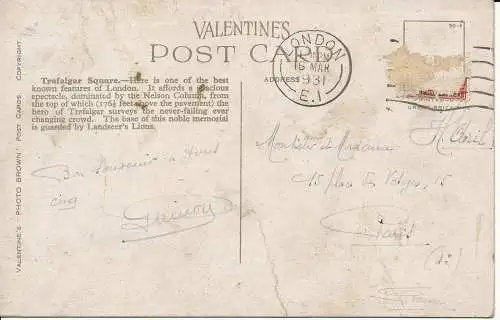 VALENTINE'S
POST CARD
ADDRESS
LONDON
PM
16 MAR
1931
E.1
Trafalgar Square.—Here is one of the best
known features of London. It affords a spacious
spectacle, dominated by the Nelson Column, from
the top of which (176½ feet above the pavement) the
hero of Trafalgar surveys the never-failing ever
changing crowd. The base of this noble memorial
is guarded by Landseer's Lions.
VALENTINE'S "PHOTO BROWN" POST CARDS. COPYRIGHT.
Bon Souvenir à
Monsieur et Madame
15 place des Vosges, 15
Paris